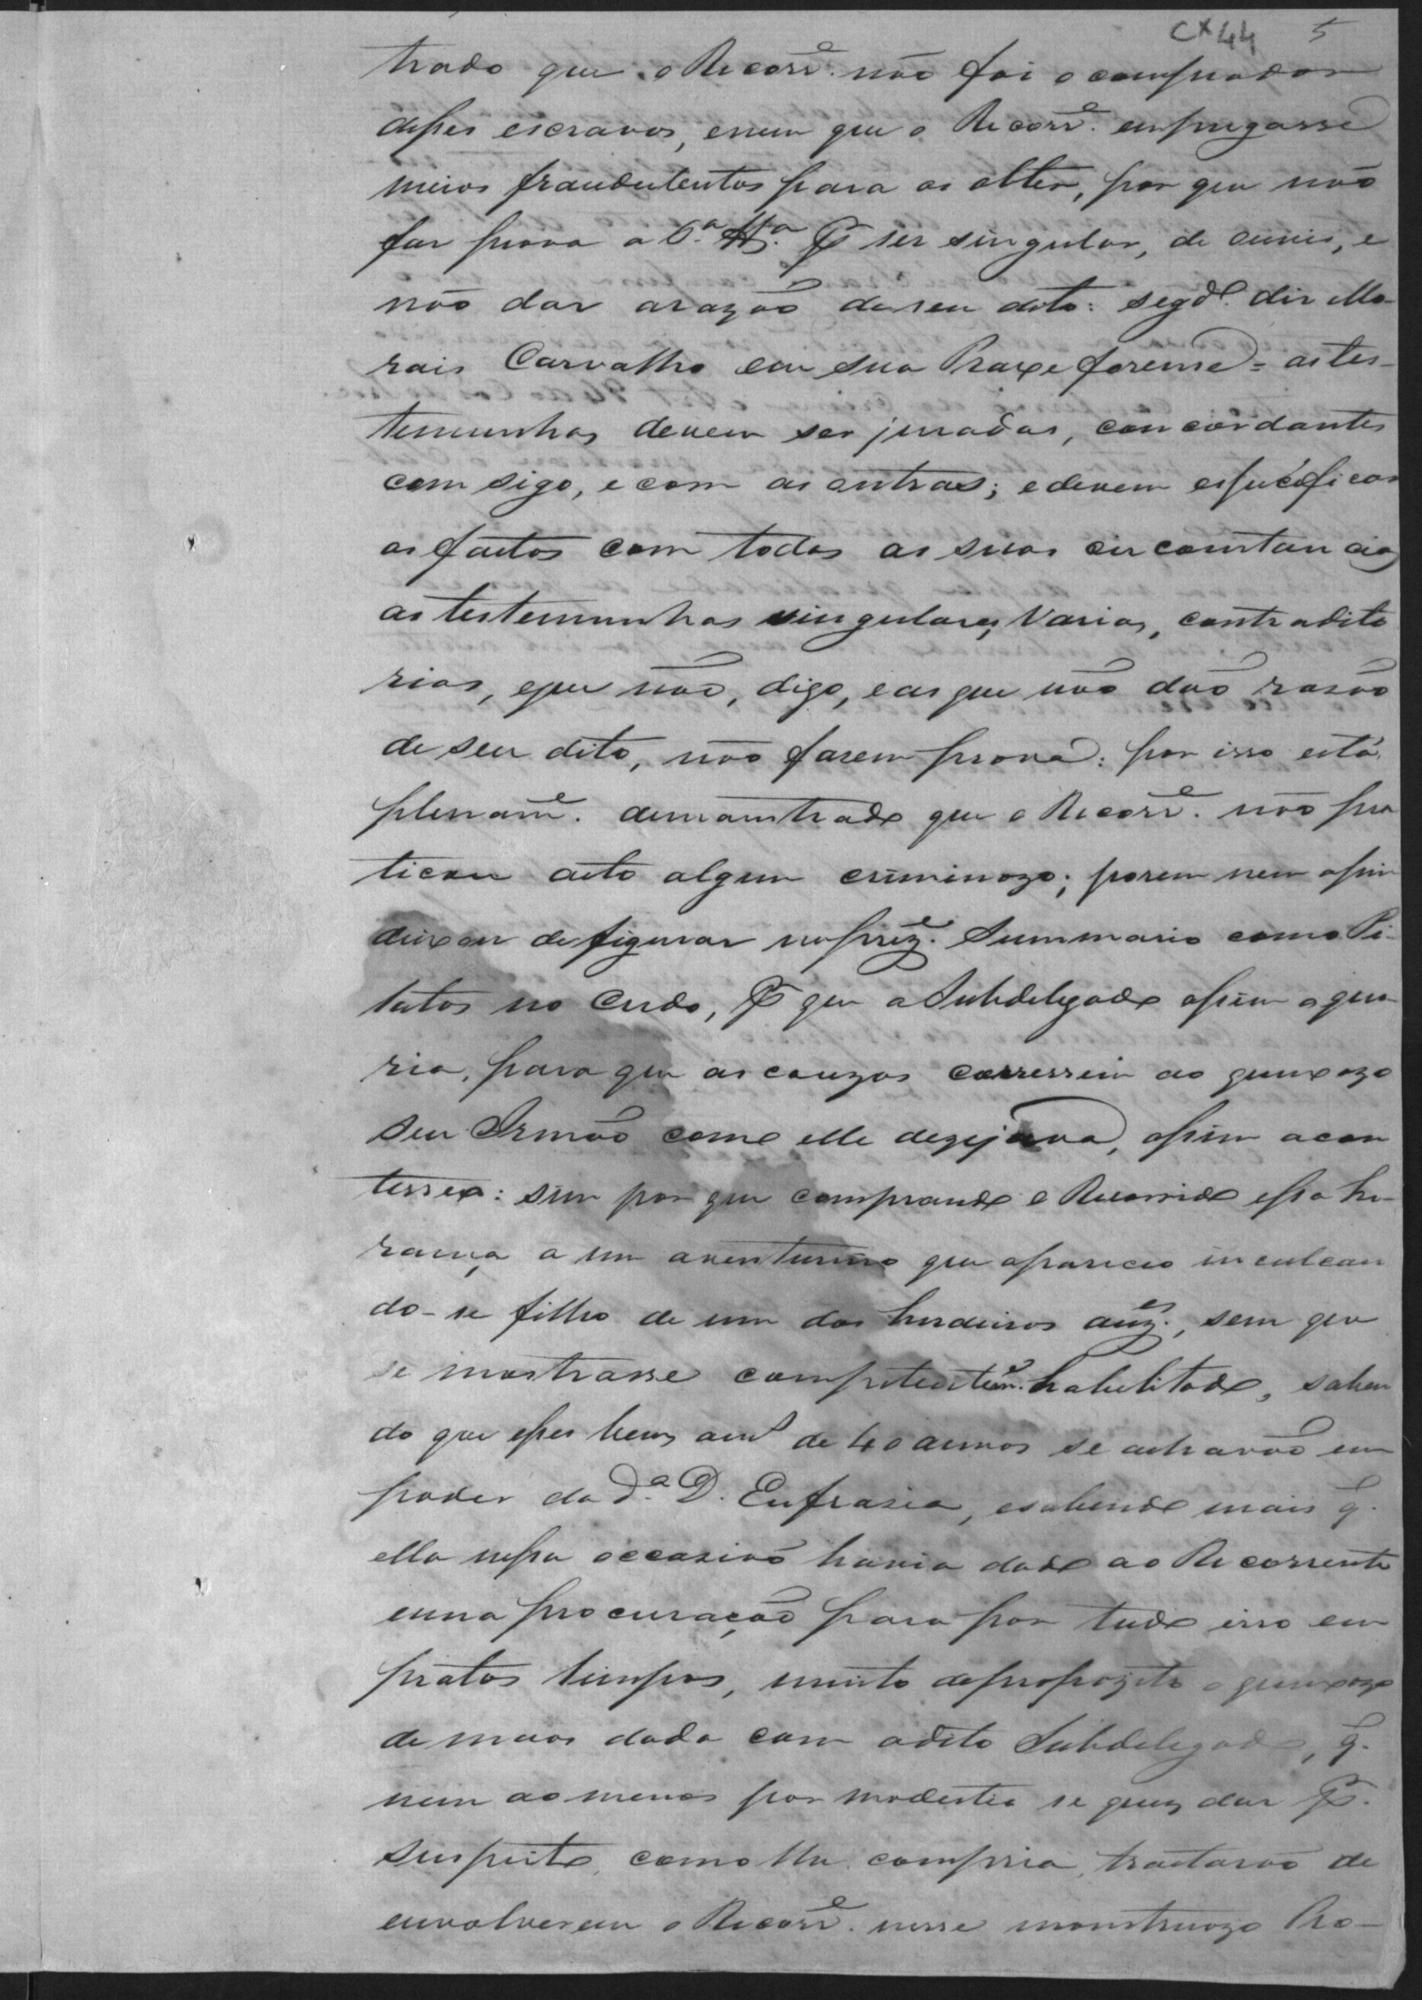 Cx 44 5
trado que o Recorr.e não foi o comprador
desses escravos, e nem que o Recorr.e empregasse
meios fraudulentos para os obter, por que não
faz prova a 6.a tt.a p ser singular, de ouvir, e
não dar a razão de seu dito: segd.o diz Mo-
rais Carvalho em sua Praxe forense = as tes-
temunhas devem ser juradas, concordantes
comsigo, e com as outras; e devem especificar
os factos com todas as suas circonstancias
as testemunhas singulares, varias, contradito
rias, e que não, digo, e as que não dão rasão
de seu dito, não fasem prova: por isso está
plenam.e demonstrado que o Recorr.e não pra
ticou acto algum criminozo; porem nem assim
deixou de figurar no prez.e Summario como Pi-
latos no Credo, p que o Subdelegado assim o que
ria, para que as couzas corressem ao queixozo
seu Irmão como elle dezejava, assim acon
tesseo: sim por que comprando o Recorrido essa he-
rança a um aventureiro que apareceo inculcan
do-se filho de um dos herdeiros auz.es, sem que
se mostrasse competentem.e habelitado, saben
do que esses bens a m.s de 40 annos se achavão em
poder da d.a D. Eufrasia, e sabendo mais q.
ella nessa occasião havia dado ao Recorrente
uma procuração para por tudo isso em
pratos limpos, muito de propozito o queixozo
de maos dada com o dito Subdelegado, q.
nem ao menos por modestia se quez dar p.
suspeito, como lhe compria, tractarão de
envolverem o Recorr.e nesse monstruozo Pro-